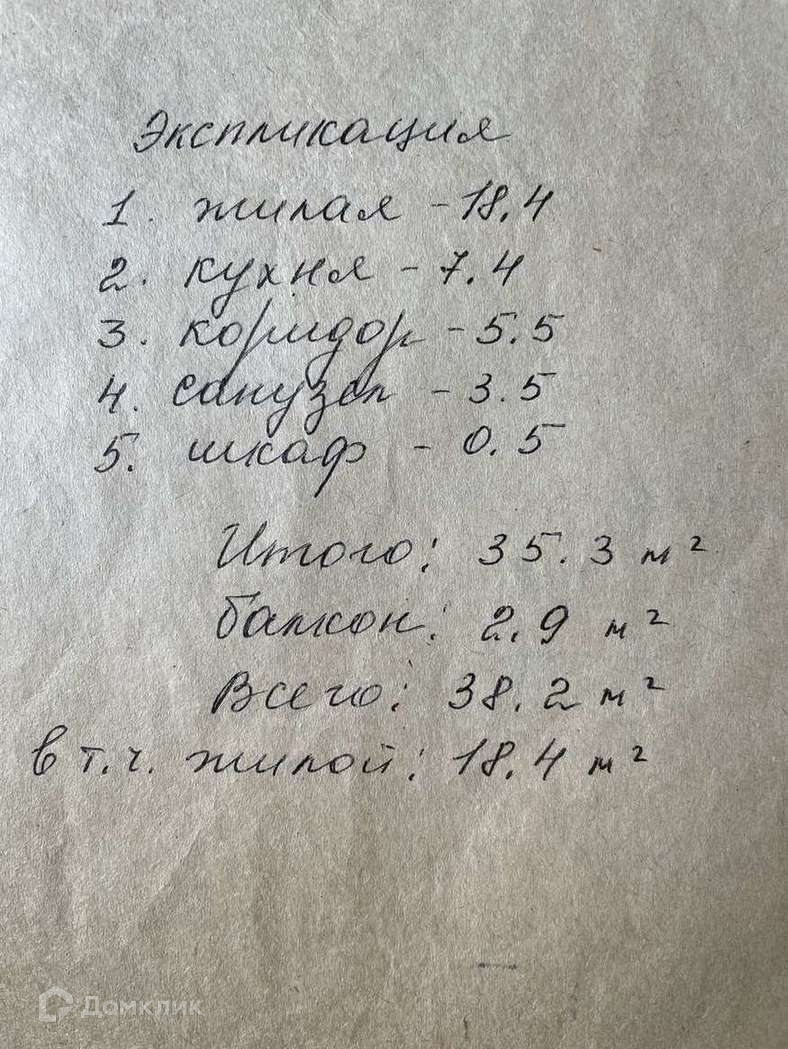 Экспликация
1. жилая - 18.4
2. кухня - 7.4
3. коридор - 5.5
4. санузел - 3.5
5. шкаф - 0.5
Итого: 35.3 м²
балкон: 2.9 м²
Всего: 38.2 м²
в т.ч. жилой: 18.4 м²
Домклик